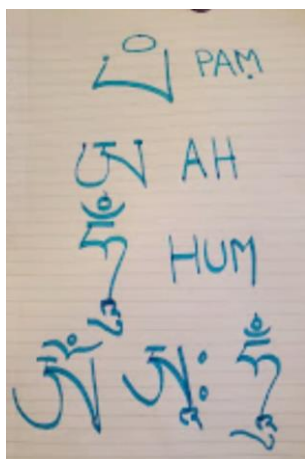 པཾ PAṂ
ཨ AH
ཧཱུྃ HUM
ཨོཾ ཨཱཿ ཧཱུྃ